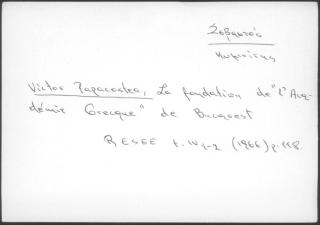 Σεβαστός
Κυμινήτης
Victor Papacostea, La fondation de "l'Aca-
démie Grecque" de Bucarest
RESEE t. IV 1-2 (1966) p. 118.